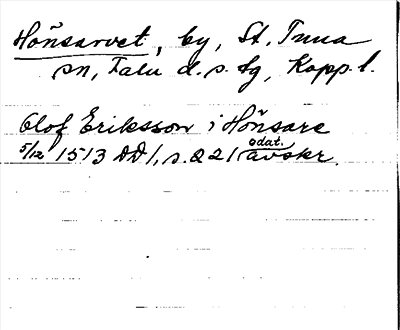 Hönsarvet, by, St. Tuna
sn, Falu d.s. fg, Kopp. l.
Olof Eriksson i Hönsare
5/12 1513 DD1, s. 221 odat. avskr.